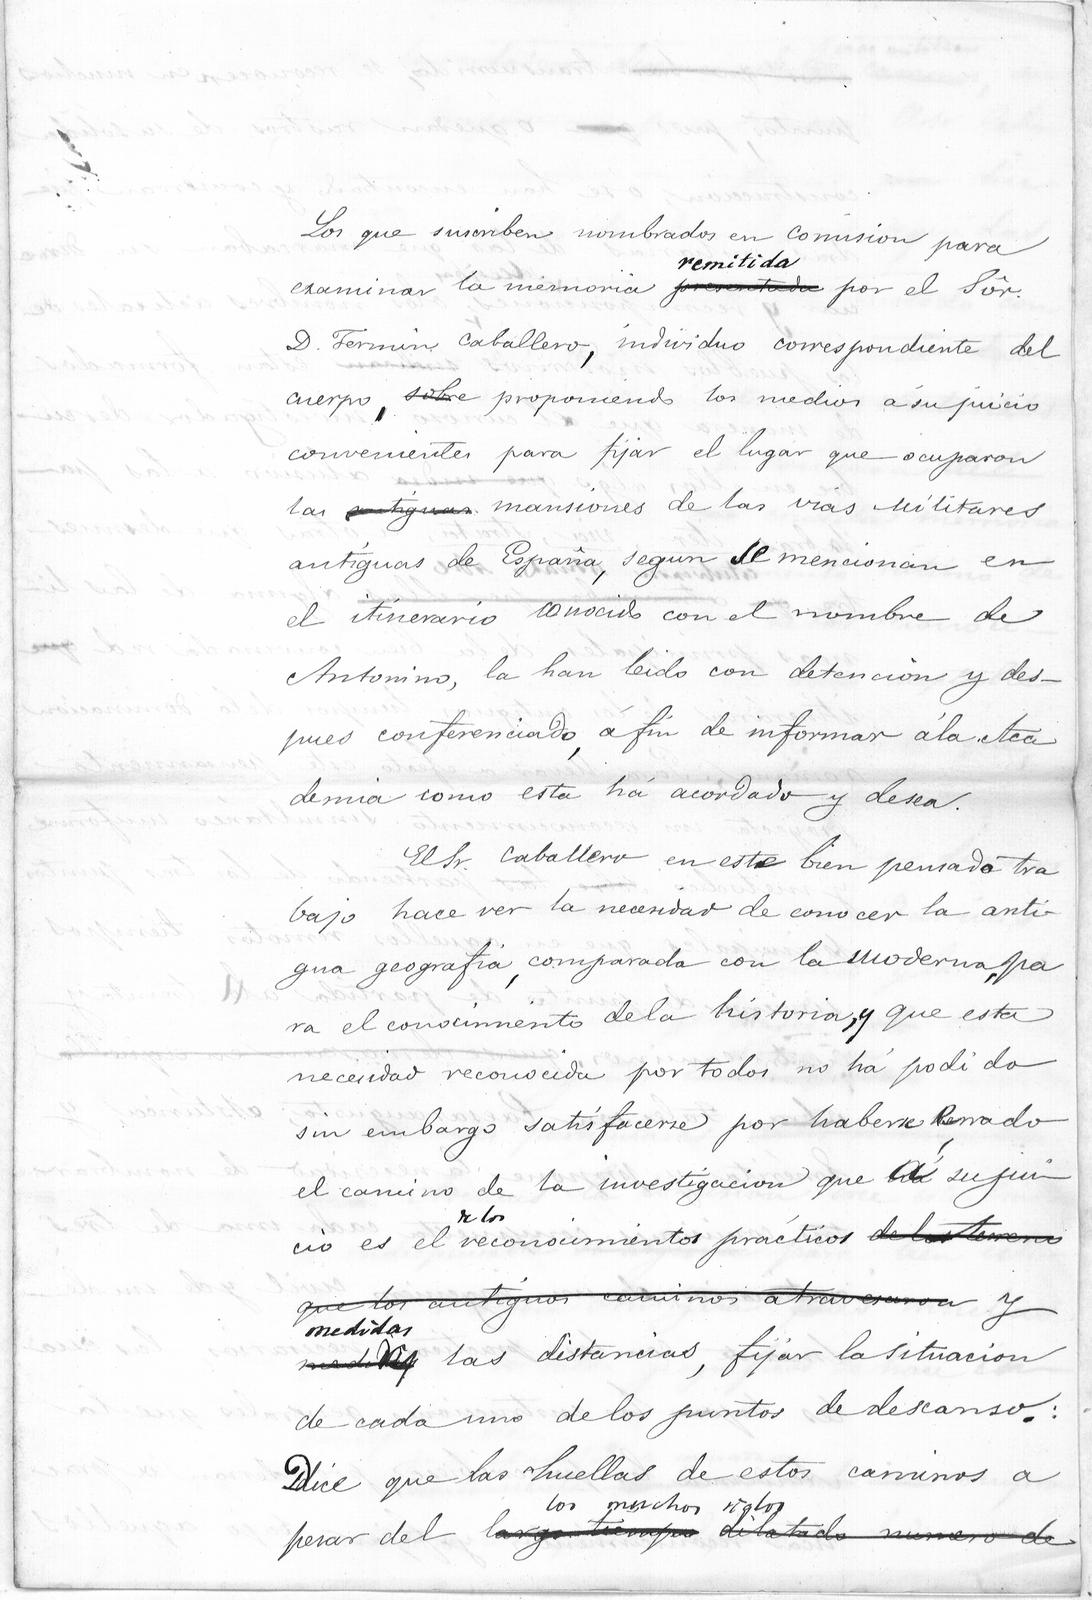 Los que suscriben nombrados en comision para
remitida
examinar la memoria presentada por el Sôr.
D. Fermin Caballero, individuo correspondiente del
cuerpo, sobre proponiendo los medios á su juicio
convenientes para fijar el lugar que ocuparon
las antiguas mansiones de las vias militares
antiguas de España, segun se mencionan en
el itinerario conocido con el nombre de
Antonino, la han leido con detencion y des-
pues conferenciado, á fin de informar á la Aca
demia como esta há acordado y desea.
El Sr. Caballero en este bien pensado tra
bajo hace ver la necesidad de conocer la anti-
gua geografia, comparada con la moderna, pa
ra el conocimiento de la historia, y que esta
necesidad reconocida por todos no há podido
sin embargo satisfacerse por haberse herrado
el camino de la investigacion que á su jui
de los
cio es el reconocimientos prácticos de los terreno
que los antiguos caminos atravesaron y
medidas
las distancias, fijar la situacion
de cada uno de los puntos de descanso:
Dice que las huellas de estos caminos a
los muchos siglos
pesar del largo tiempo dilatado numero de